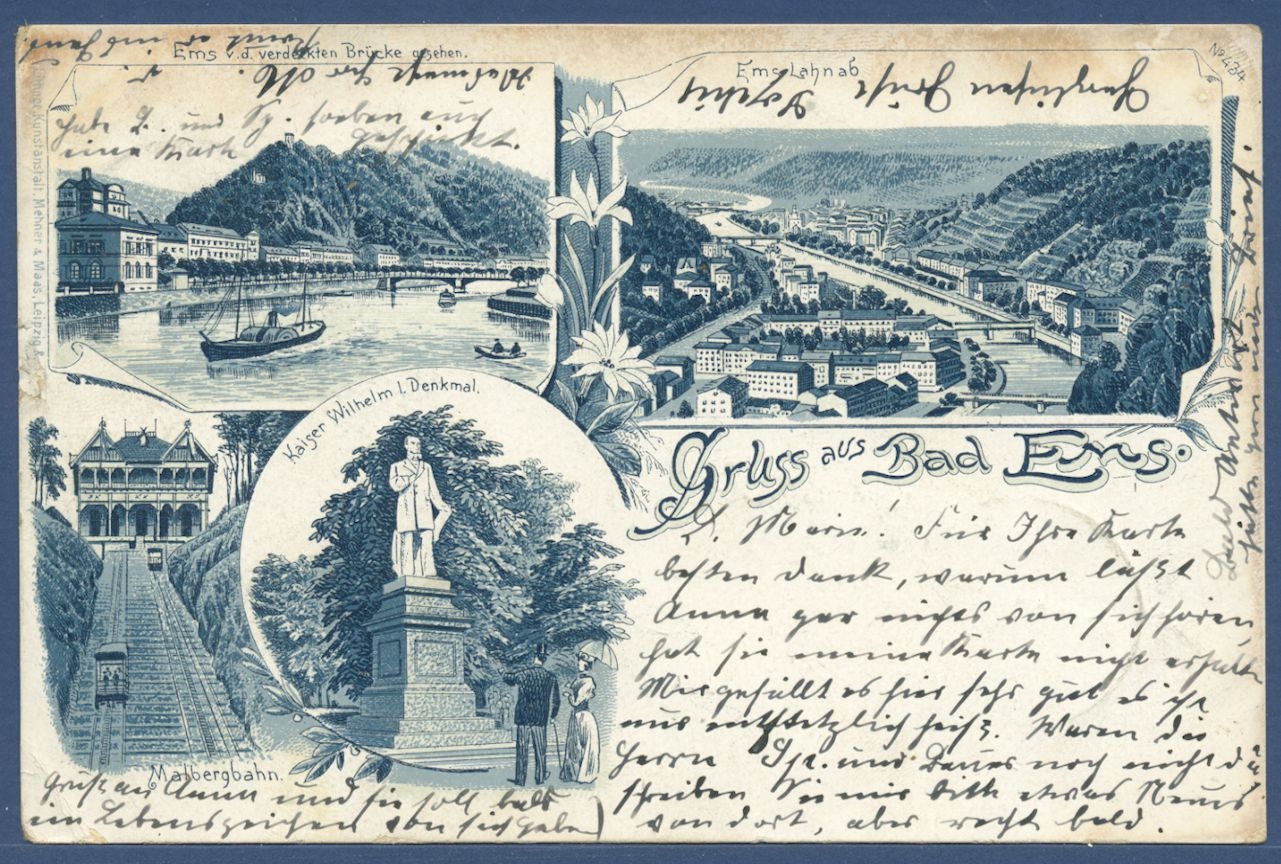 Ems v. d. verdeckten Brücke gesehen.
Habe L. und Sp. soeben auch
eine Karte geschickt.
Ems Lahnab
No 434
Herzlichen Gruß
Kunstanstalt, Mehner & Maas, Leipzig
Kaiser Wilhelm I. Denkmal.
Malbergbahn.
Gruss aus Bad Ems.
D. Marie! Für Ihre Karte
besten Dank, warum läßt
Anna gar nichts von sich hören,
hat sie meine Karte nicht erhalten
Mir gefällt es hier sehr gut es ist
nur entsetzlich heiß. Waren die
Herrn und noch nicht da
schreiben Sie mir bitte etwas Neues
von dort, aber recht bald.
Gruß an Anna und sie soll bald
ein Lebenszeichen von sich geben)
Bald Antwort